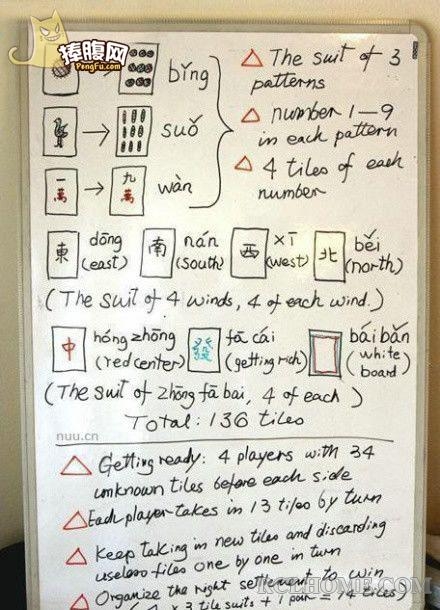 捧腹网
PengFu.com
bǐng
suǒ
一萬 → 九萬 wàn
△ The suit of 3 patterns
△ number 1—9 in each pattern
△ 4 tiles of each number
東 dōng (east) 南 nán (south) 西 xī (west) 北 běi (north)
(The suit of 4 winds, 4 of each wind.)
中 hóng zhōng (red center) 發 fā cái (getting rich) bái bǎn (white board)
(The suit of zhōng fā bai, 4 of each)
Total: 136 tiles
nuu.cn
△ Getting ready: 4 players with 34
unknown tiles before each side
△ Each player takes in 13 tiles by turn
△ Keep taking in new tiles and discarding
useless tiles one by one in turn
△ Organize the right settlement to win
x 3 tile suits + 1 pair = 14 tiles)